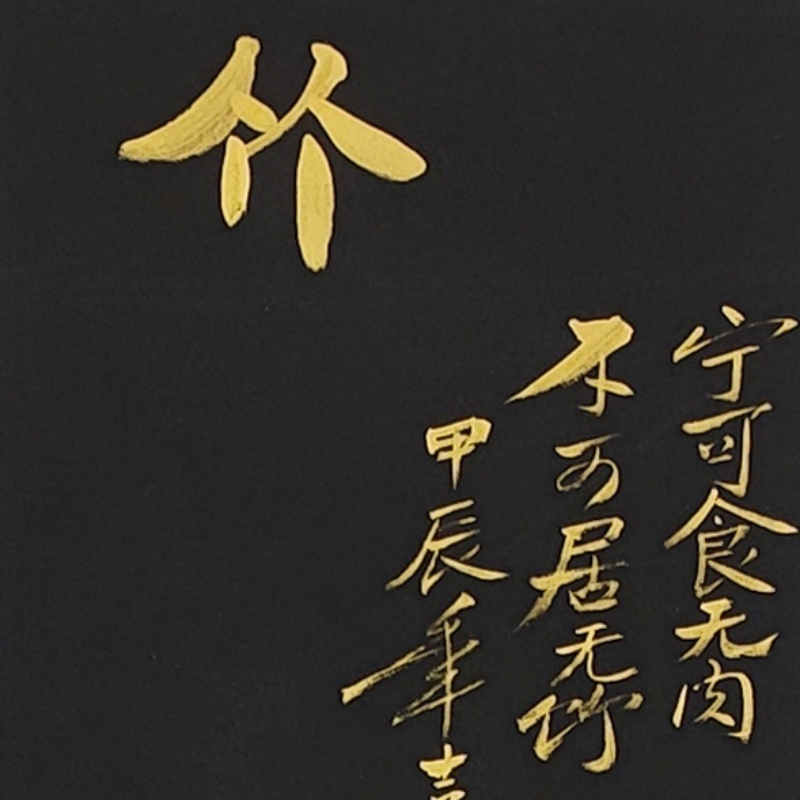 竹
宁可食无肉
不可居无竹
甲辰年